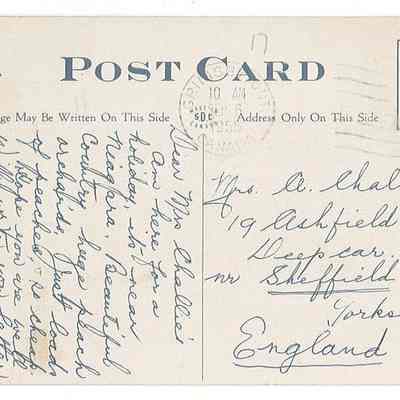 POST CARD
ge May Be Written On This Side
Address Only On This Side
10 AM
Dear Mrs Challice
am here for a
holiday it is near
Niagara. Beautiful
Country huge peach
orchards. Just loads
of peaches so cheap.
Hope you are well
Mrs. A. Chal
19 Ashfield
Deepcar,
nr Sheffield
Yorks
England